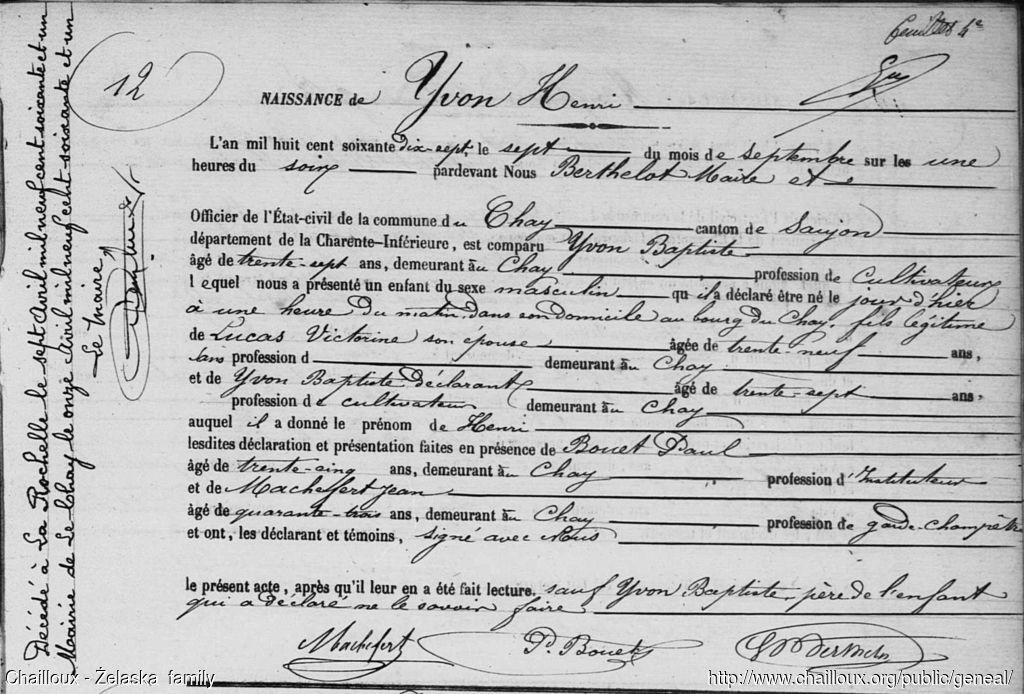 feuillet 4e
12
NAISSANCE de Yvon Henri
L'an mil huit cent soixante dix-sept, le sept du mois de septembre sur les une
heures du soir pardevant Nous Berthelot Maire et
Officier de l'État-civil de la commune du Chay canton de Saujon
département de la Charente-Inférieure, est comparu Yvon Baptiste
âgé de trente-sept ans, demeurant au Chay profession de cultivateur
lequel nous a présenté un enfant du sexe masculin qu'il a déclaré être né le jour d'hier
à une heure du matin, dans son domicile au bourg du Chay, fils légitime
de Lucas Victorine son épouse âgée de trente-neuf ans,
sans profession d demeurant au Chay
et de Yvon Baptiste déclarant âgé de trente-sept ans,
profession de cultivateur demeurant au Chay
auquel il a donné le prénom de Henri
lesdites déclaration et présentation faites en présence de Bouet Paul
âgé de trente-cinq ans, demeurant au Chay profession d'Instituteur
et de Macheffert Jean
âgé de quarante-trois ans, demeurant au Chay profession de garde-champêtre
et ont, les déclarant et témoins, signé avec Nous
le présent acte, après qu'il leur en a été fait lecture, sauf Yvon Baptiste, père de l'enfant
qui a déclaré ne le savoir faire.
Machefert P. Bouet
Décédé à La Rochelle le sept Avril mil neuf cent soixante et un
Mairie de Le Chay le onze Avril mil neuf cent soixante et un
Le Maire
Chailloux - Żelaska family http://www.chailloux.org/public/geneal/